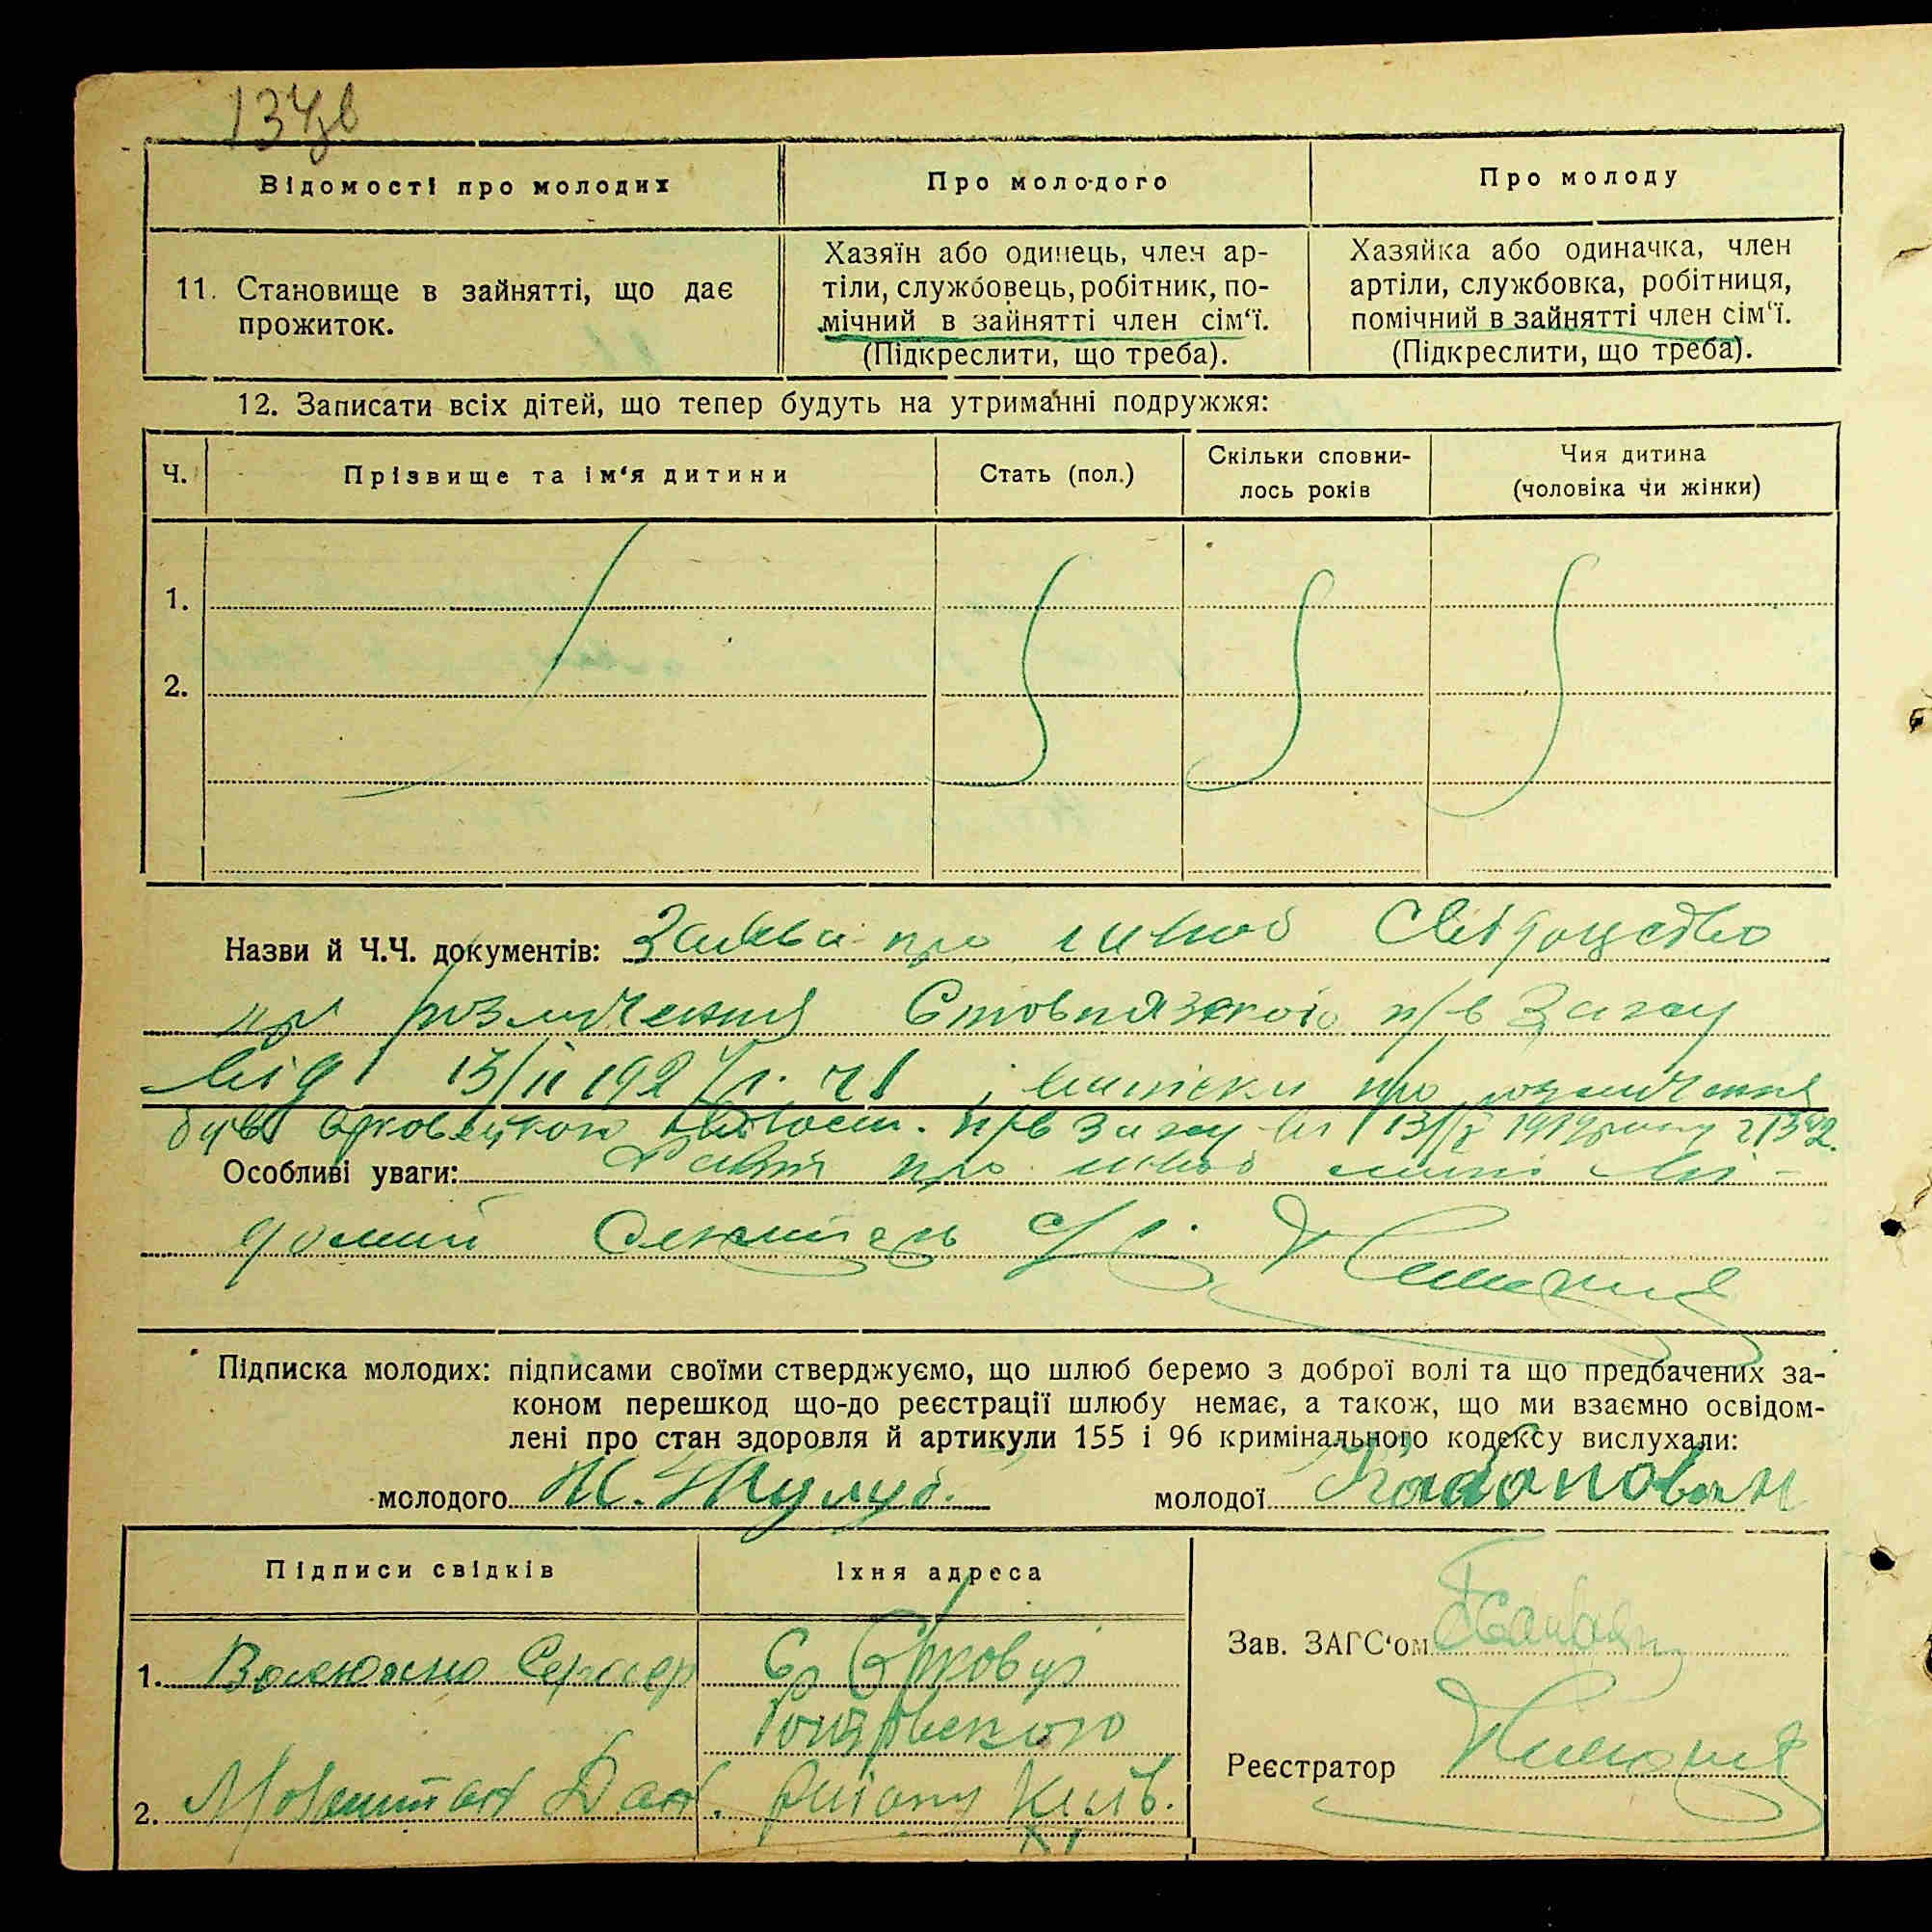 134зв
Відомості про молодих
Про молодого
Про молоду
11. Становище в зайнятті, що дає
прожиток.
Хазяїн або одинець, член ар-
тіли, службовець, робітник, по-
мічний в зайнятті член сім‘ї.
(Підкреслити, що треба).
Хазяйка або одиначка, член
артіли, службовка, робітниця,
помічний в зайнятті член сім‘ї.
(Підкреслити, що треба).
12. Записати всіх дітей, що тепер будуть на утриманні подружжя:
Ч.
Прізвище та ім‘я дитини
Стать (пол.)
Скільки сповни-
лось років
Чия дитина
(чоловіка чи жінки)
1.
2.
Назви й Ч.Ч. документів: Заява про шлюб Свідоцтво
про розлучення Стовпязского п/в Загсу
від 13/II 192 і виписки про розлучення
був. п/в Загсу
Особливі уваги: про шлюб мині ві-
домий
Підписка молодих: підписами своїми стверджуємо, що шлюб беремо з доброї волі та що предбачених за-
коном перешкод що-до реєстрації шлюбу немає, а також, що ми взаємно освідом-
лені про стан здоровля й артикули 155 і 96 кримінального кодексу вислухали:
молодого
молодої
Підписи свідків
Іхня адреса
1.
С
2.
району Київ.
Зав. ЗАГС‘ом
Реєстратор